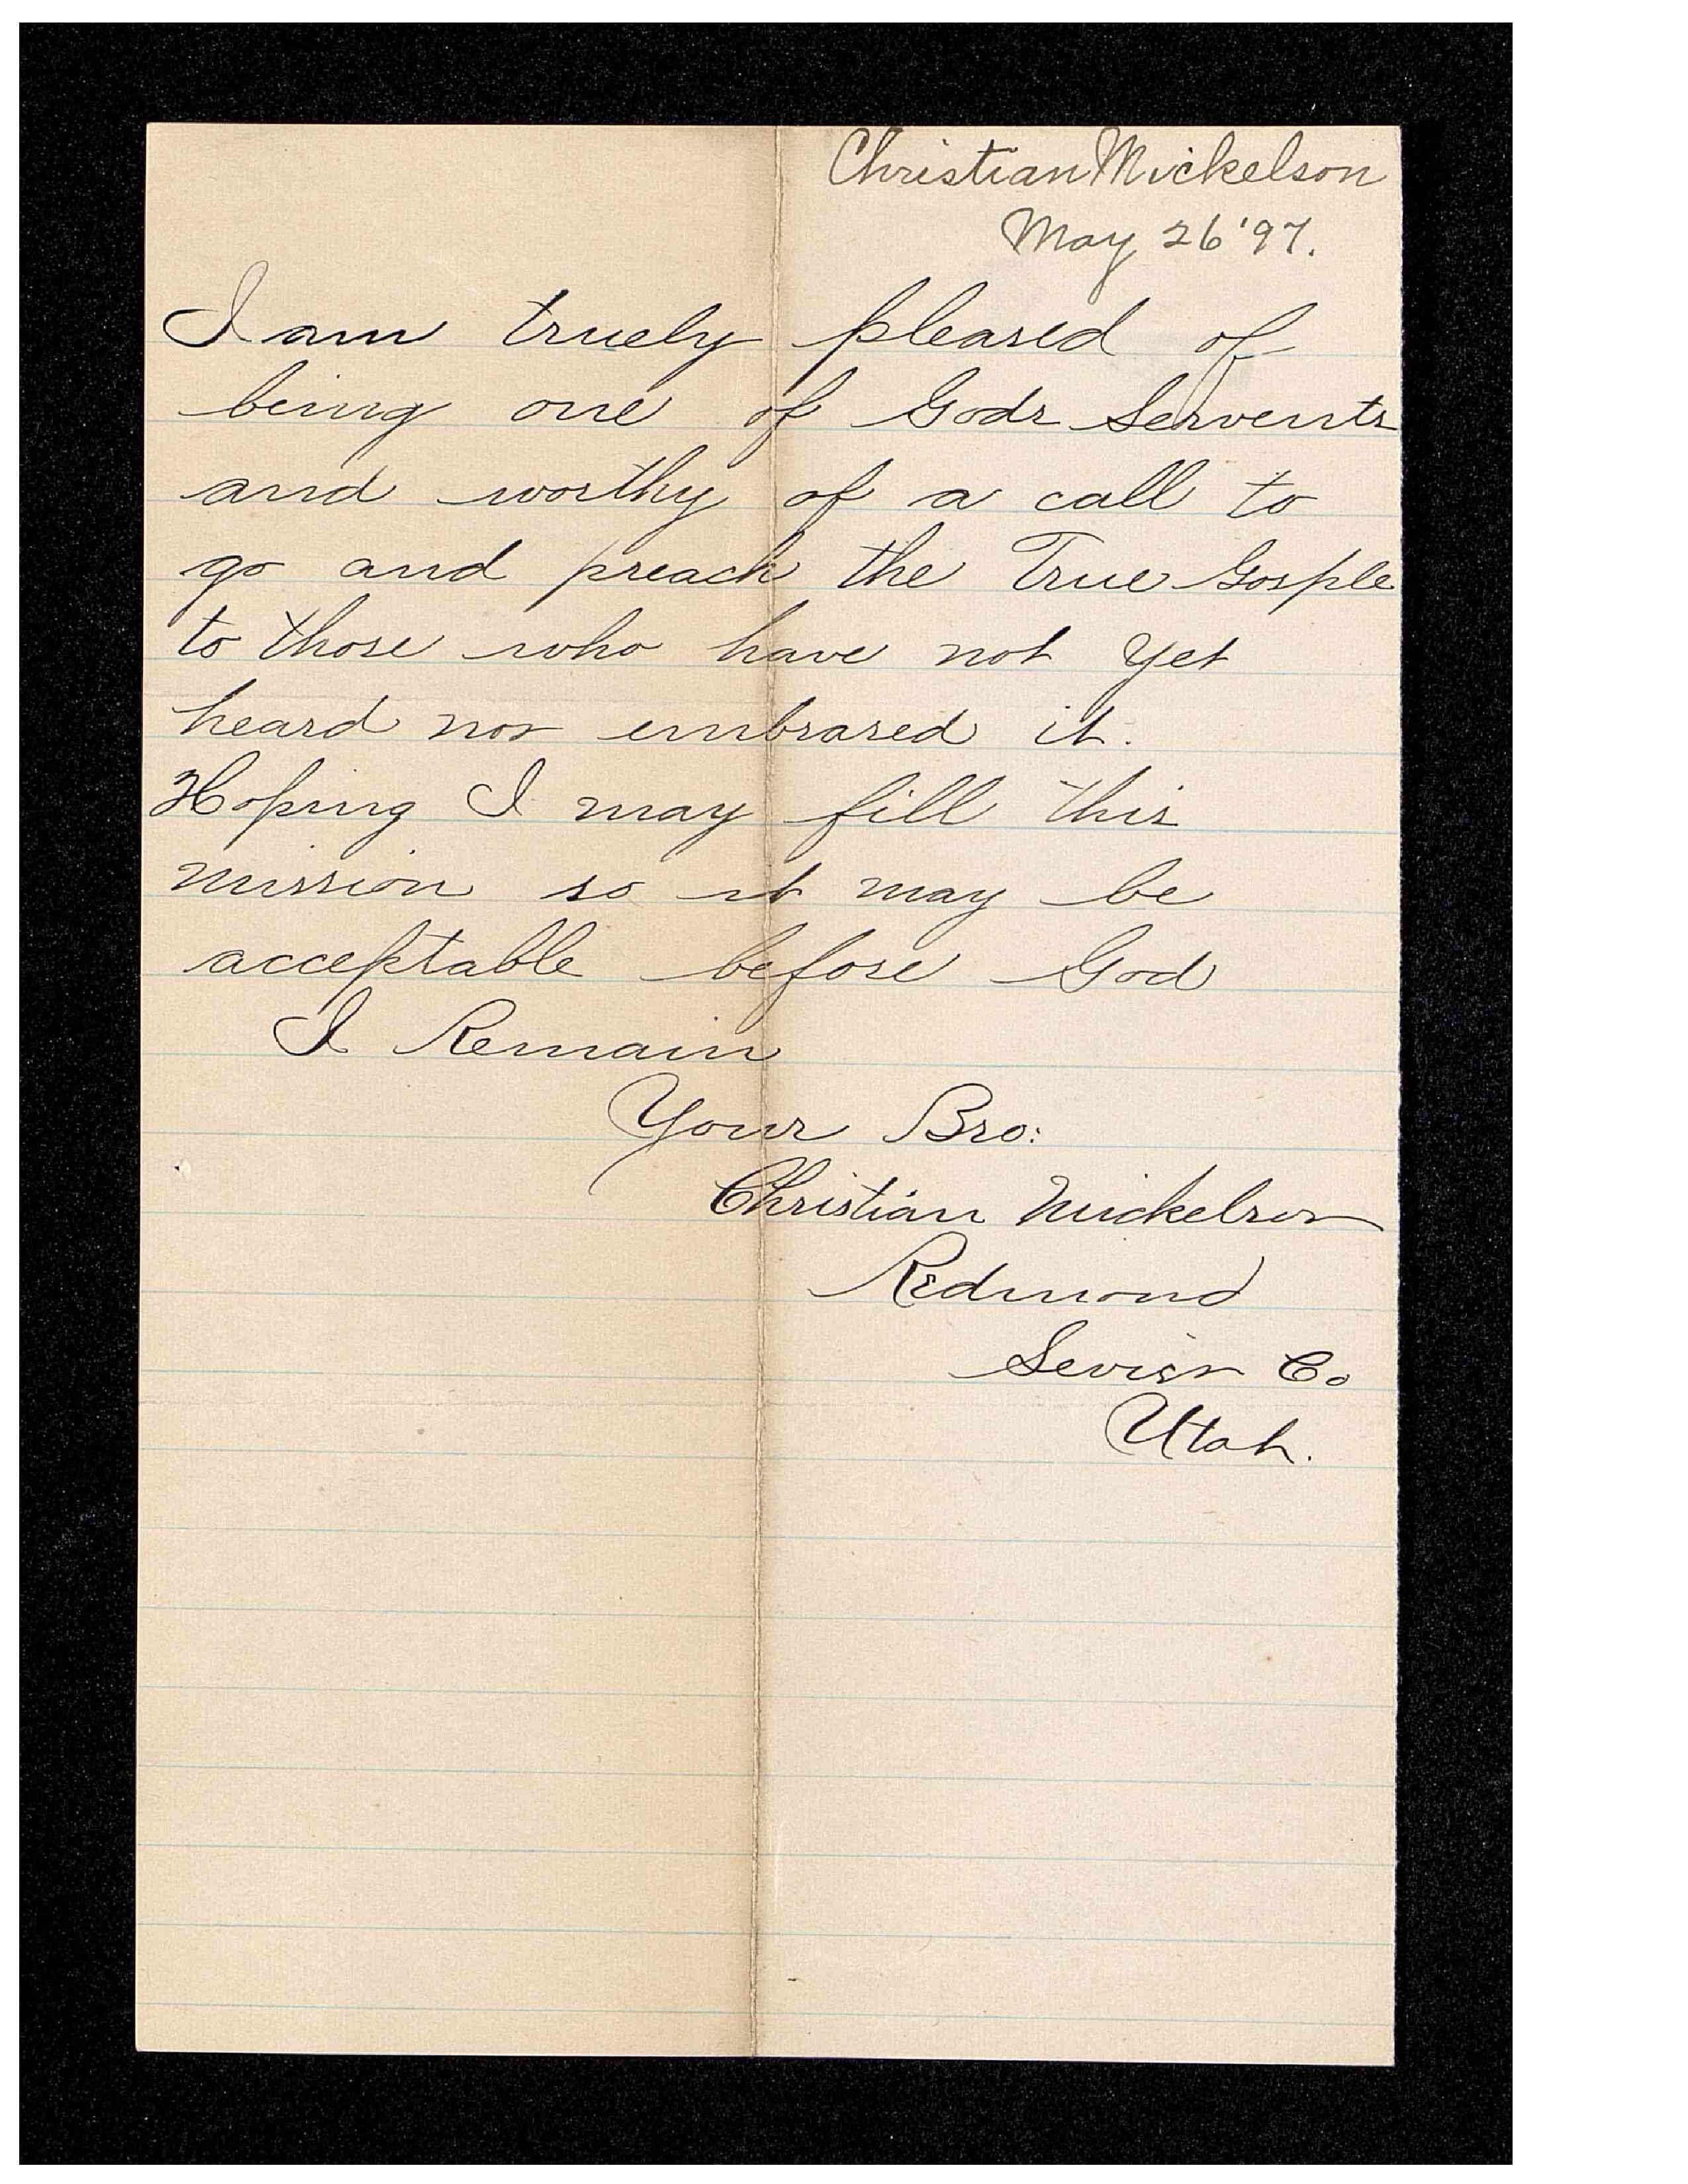 Christian Mickelson
May 26 '97.
I am truely pleased of
being one of Gods Servents
and worthy of a call to
go and preach the True Gosple
to those who have not yet
heard nor embrased it.
Hoping I may fill this
mission so it may be
acceptable before God
I Remain
Your Bro:
Christian Mickelson
Redmond
Sevier Co
Utah.